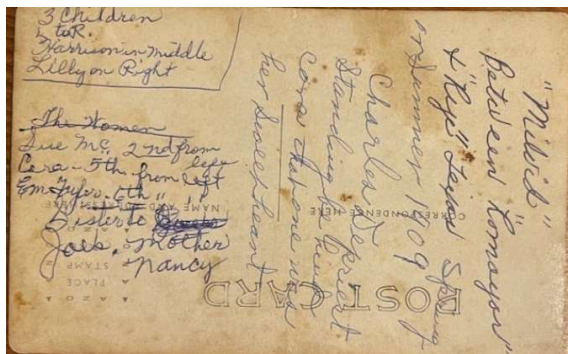 3 Children
L to R.
Harrison in middle
Lilly on Right
The Women
Sue Mc 2nd from left
Cora - 5th from left
Em Fyfer 6th " "
Sister to
Joes. Mother
Nancy
"Milvid"
Between "Lomayor"
& "Rye" Texas Spring
or Summer 1909
Charles Depriest
Standing behind
Cora that one was
her Sweepheart
POST CARD
CORRESPONDENCE HERE
NAME AND ADDRESS HERE
PLACE
STAMP
AZO